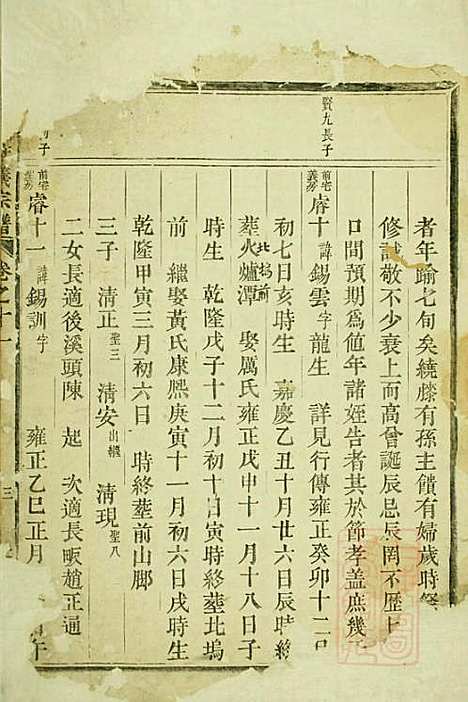 者年踰七旬矣繞膝有孫主饋有婦歲時祭
修誠敬不少衰上而高曾誕辰忌辰罔不歷上
口間預期爲値年諸姪告者其於節孝蓋庶幾
賢九長子
前宅義房 睿十 諱錫雲字龍生 詳見行傳雍正癸卯十二月
初七日亥時生 嘉慶乙丑十月廿六日辰時終
葬火爐潭北塢前 娶厲氏雍正戊申十一月十八日子
時生 乾隆戊子十二月初十日寅時終葬北塢
前 繼娶黃氏康熙庚寅十一月初六日戌時生
乾隆甲寅三月初六日 時終葬前山脚
三子 清正聖三 清安出繼 清現聖八
二女長適後溪頭陳 起 次適長畈趙正通
子
前宅義房 睿十一 諱錫訓字 雍正乙巳正月 午
義宗譜 卷之十一 三